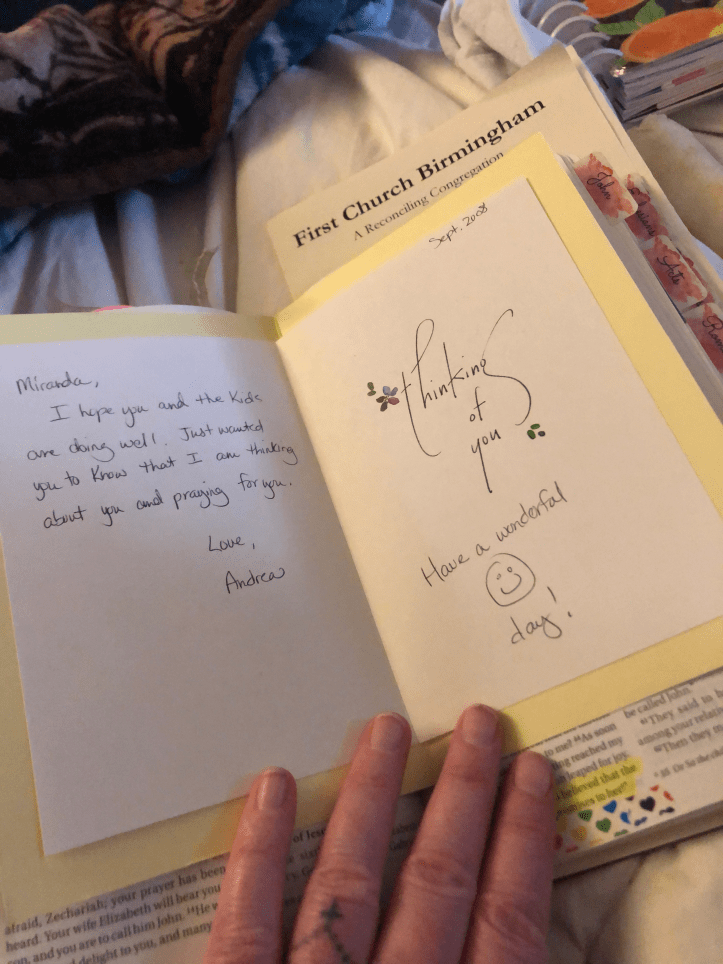 First Church Birmingham
A Reconciling Congregation
John
Acts
Sept. 2008
Miranda,
I hope you and the Kids
are doing well. Just wanted
you to know that I am thinking
about you and praying for you.
Love,
Andrea
thinking
of
you
Have a wonderful
day!
be called John."
"They said to
among your relat
"Then they m
to me? 44As soon
ng reached my
leaped for joy.
believed that the
promises to her!"
of Jes
afraid, Zechariah; your prayer has been
heard. Your wife Elizabeth will bear you
son, and you are to call him John. 14He w
delight to you, and many